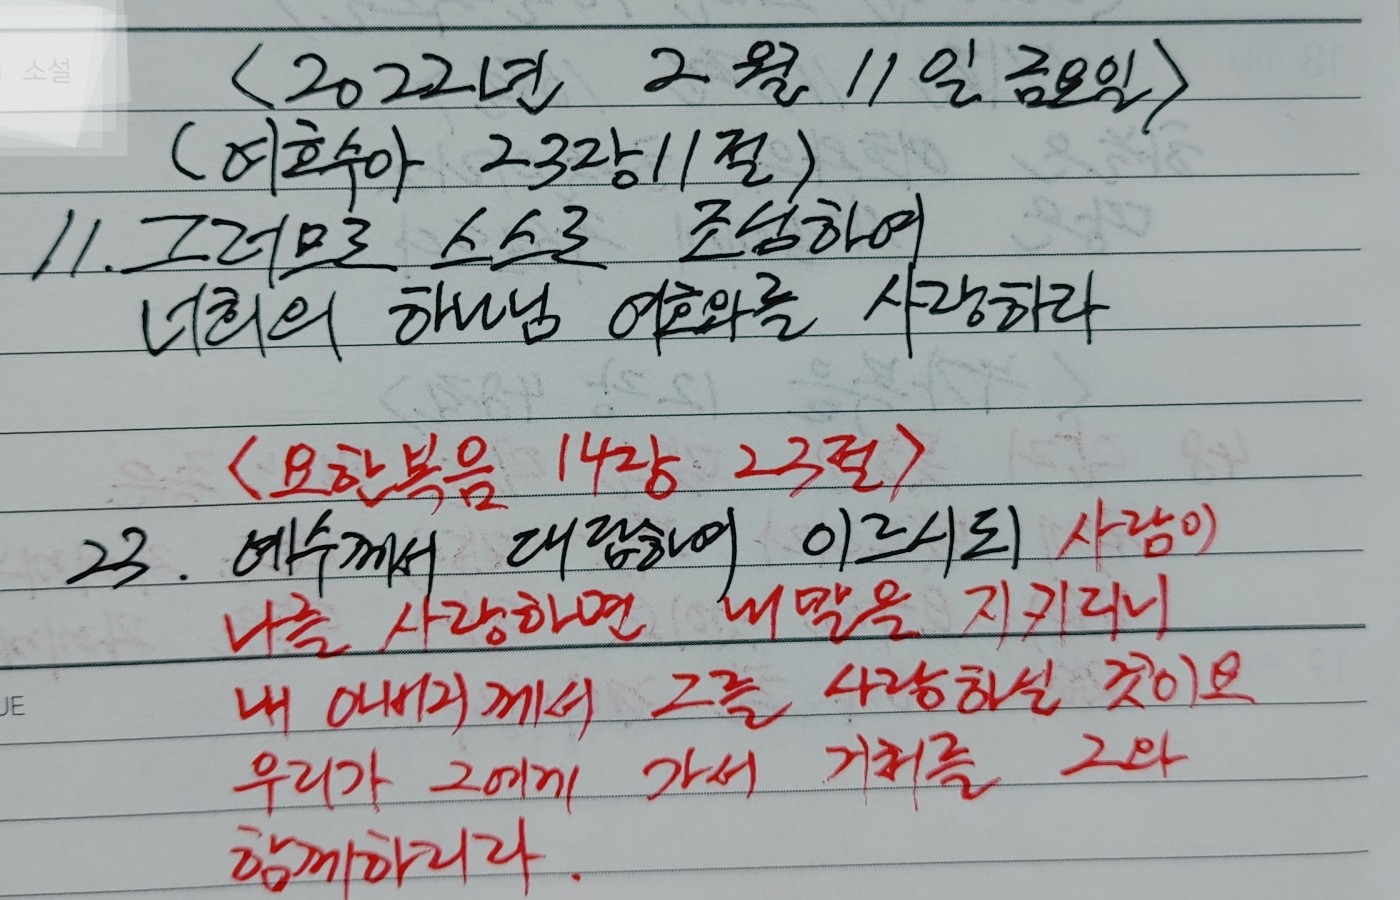 소설
<2022년 2월 11일 금요일>
(여호수아 23장 11절)
11. 그러므로 스스로 조심하여
너희의 하나님 여호와를 사랑하라
<요한복음 14장 23절>
23. 예수께서 대답하여 이르시되 사람이
나를 사랑하면 내 말을 지키리니
UE
내 아버지께서 그를 사랑하실 것이요
우리가 그에게 가서 거처를 그와
함께하리라.